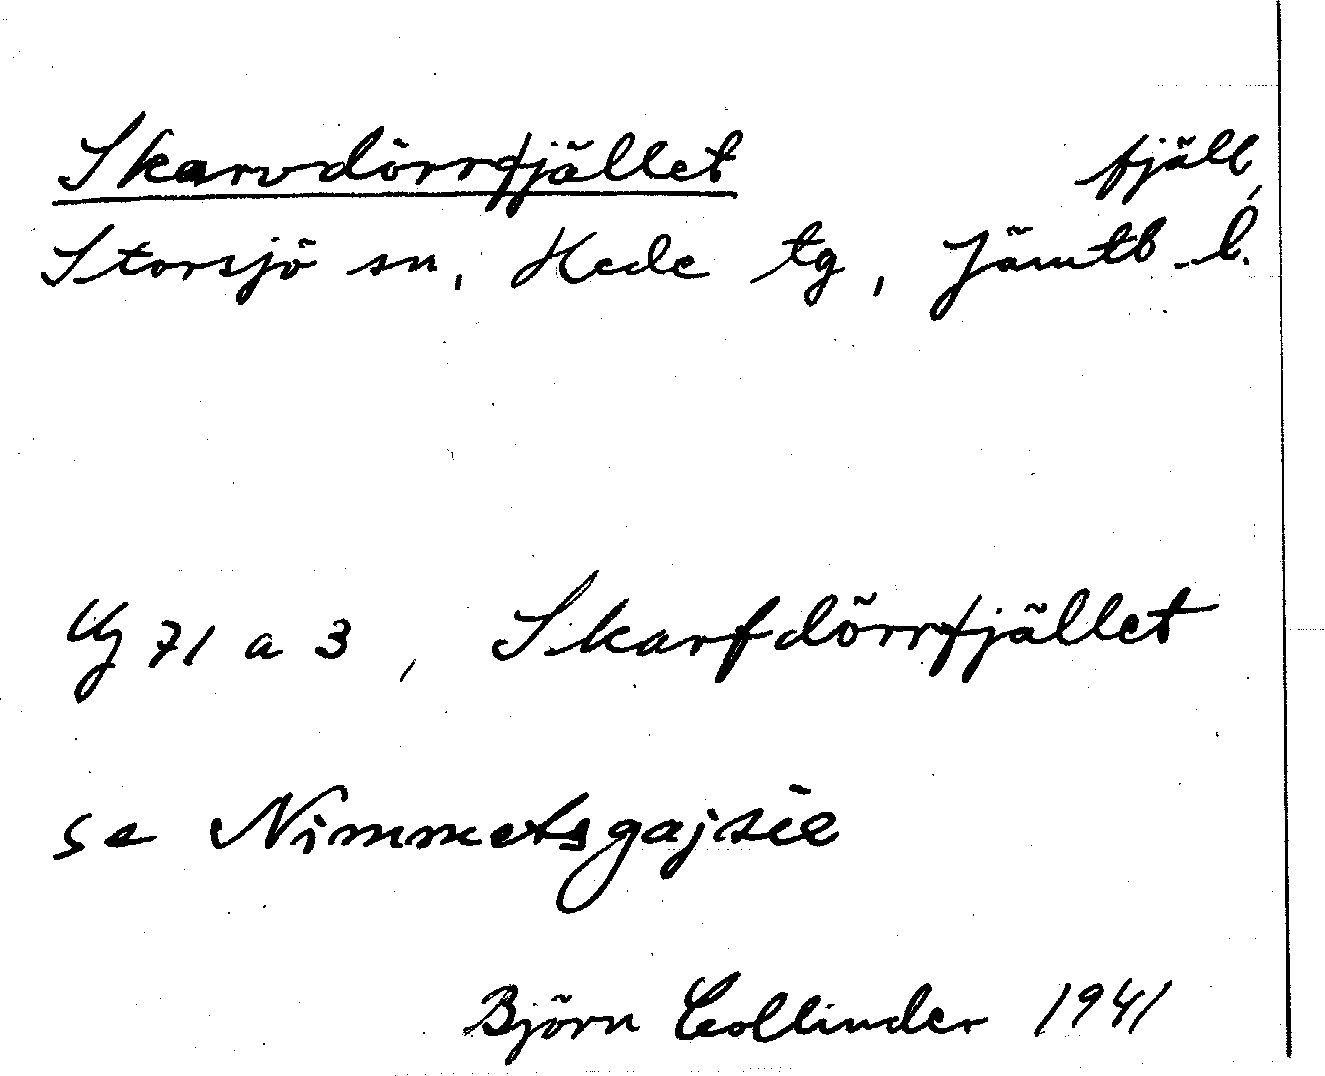 Skarvdörrfjället fjäll,
Storsjö sn, Hede tg, Jämtl. l.
Ug 71 a 3, Skarfdörrfjället
se Nimmetsgajsie
Björn Collinder 1941